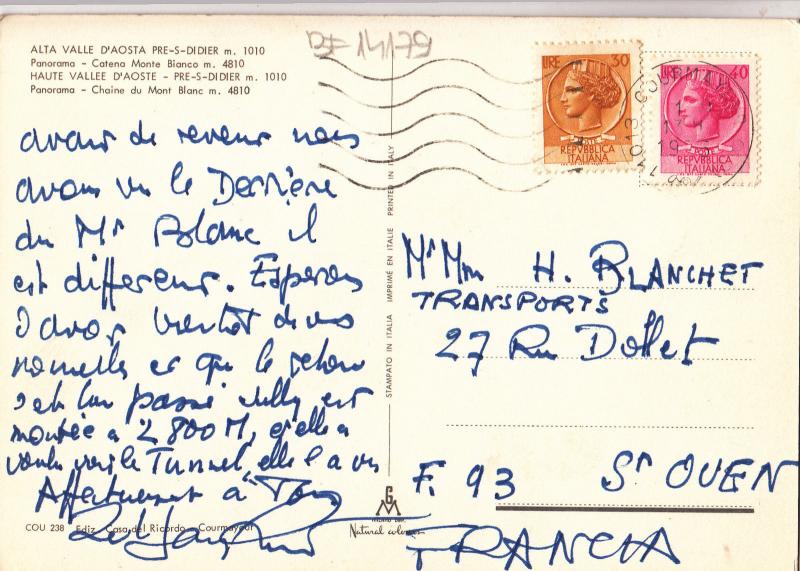 ALTA VALLE D'AOSTA PRE-S-DIDIER m. 1010
Panorama - Catena Monte Bianco m. 4810
HAUTE VALLEE D'AOSTE - PRE-S-DIDIER m. 1010
Panorama - Chaine du Mont Blanc m. 4810
BF 14179
LIRE 30
REPVBBLICA
ITALIANA
LIRE 40
REPVBBLICA
ITALIANA
COURMAY
avant de revenir nous
avons vu le Derrière
du Mt Blanc il
est différent. Esperons
d'avoir bientôt de vos
nouvelles et que le retour
s'est bien passé est
montée a 2800M, elle a
voulu voir le Tunnel, elle l'a vu
Affectueusement à Tous
STAMPATO IN ITALIA IMPRIMÉ EN ITALIE PRINTED IN ITALY
Mr Mm H. BLANCHET
TRANSPORTS
27 Ru Dollet
F. 93 St OUEN
FRANCIA
COU 238 Ediz. Casa del Ricordo - Courmayeur
GM
Natural colours